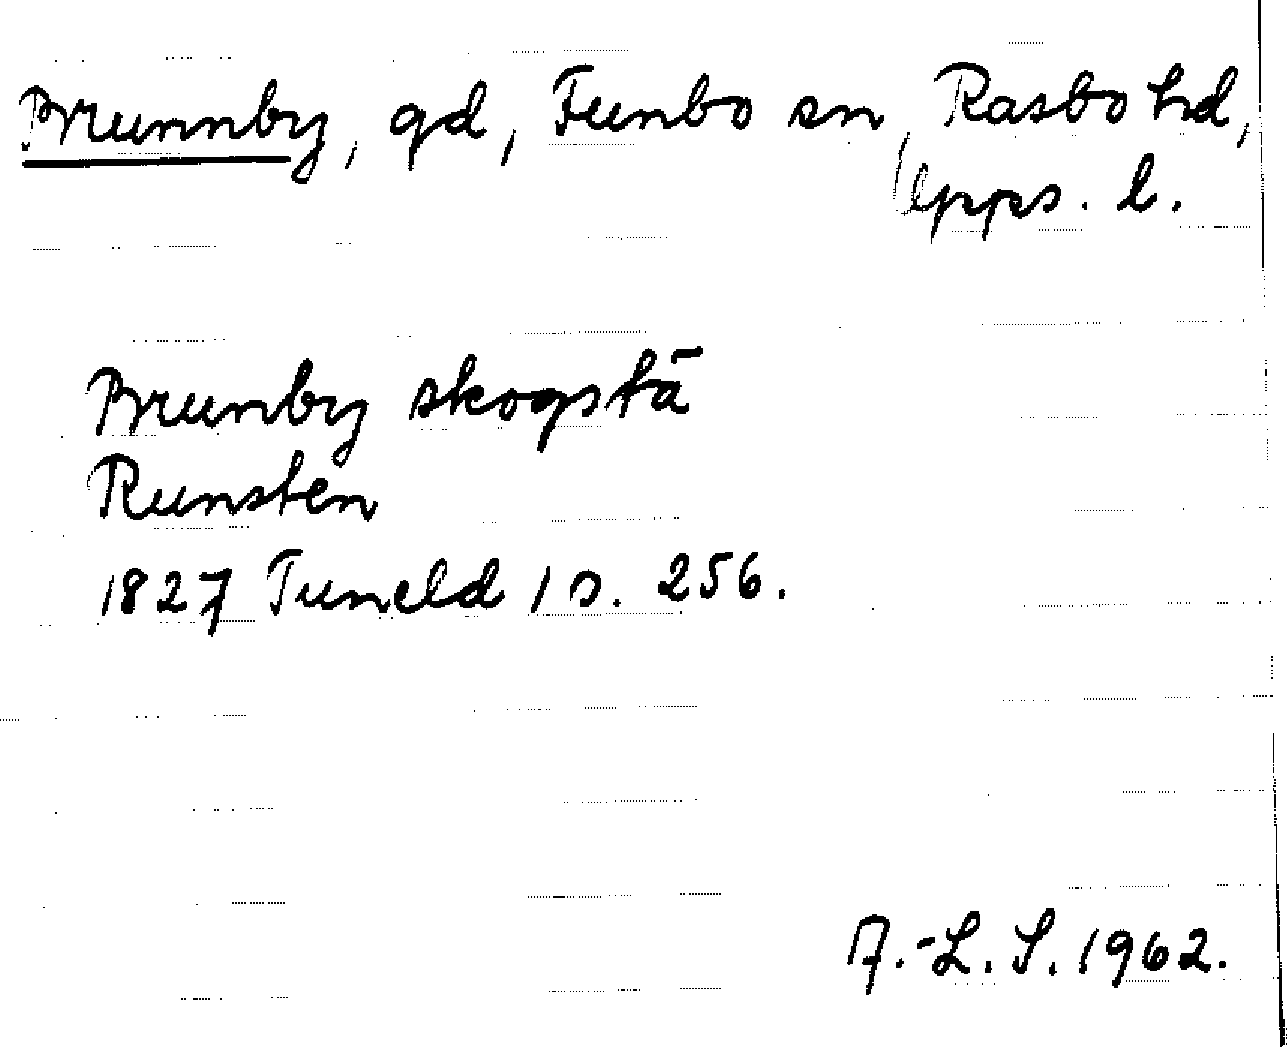 Brunnby, gd, Funbo sn, Rasbo hd,
Upps. l.
Brunby skogstä
Runsten
1827 Tuneld 1 s. 256.
A.-L. S. 1962.